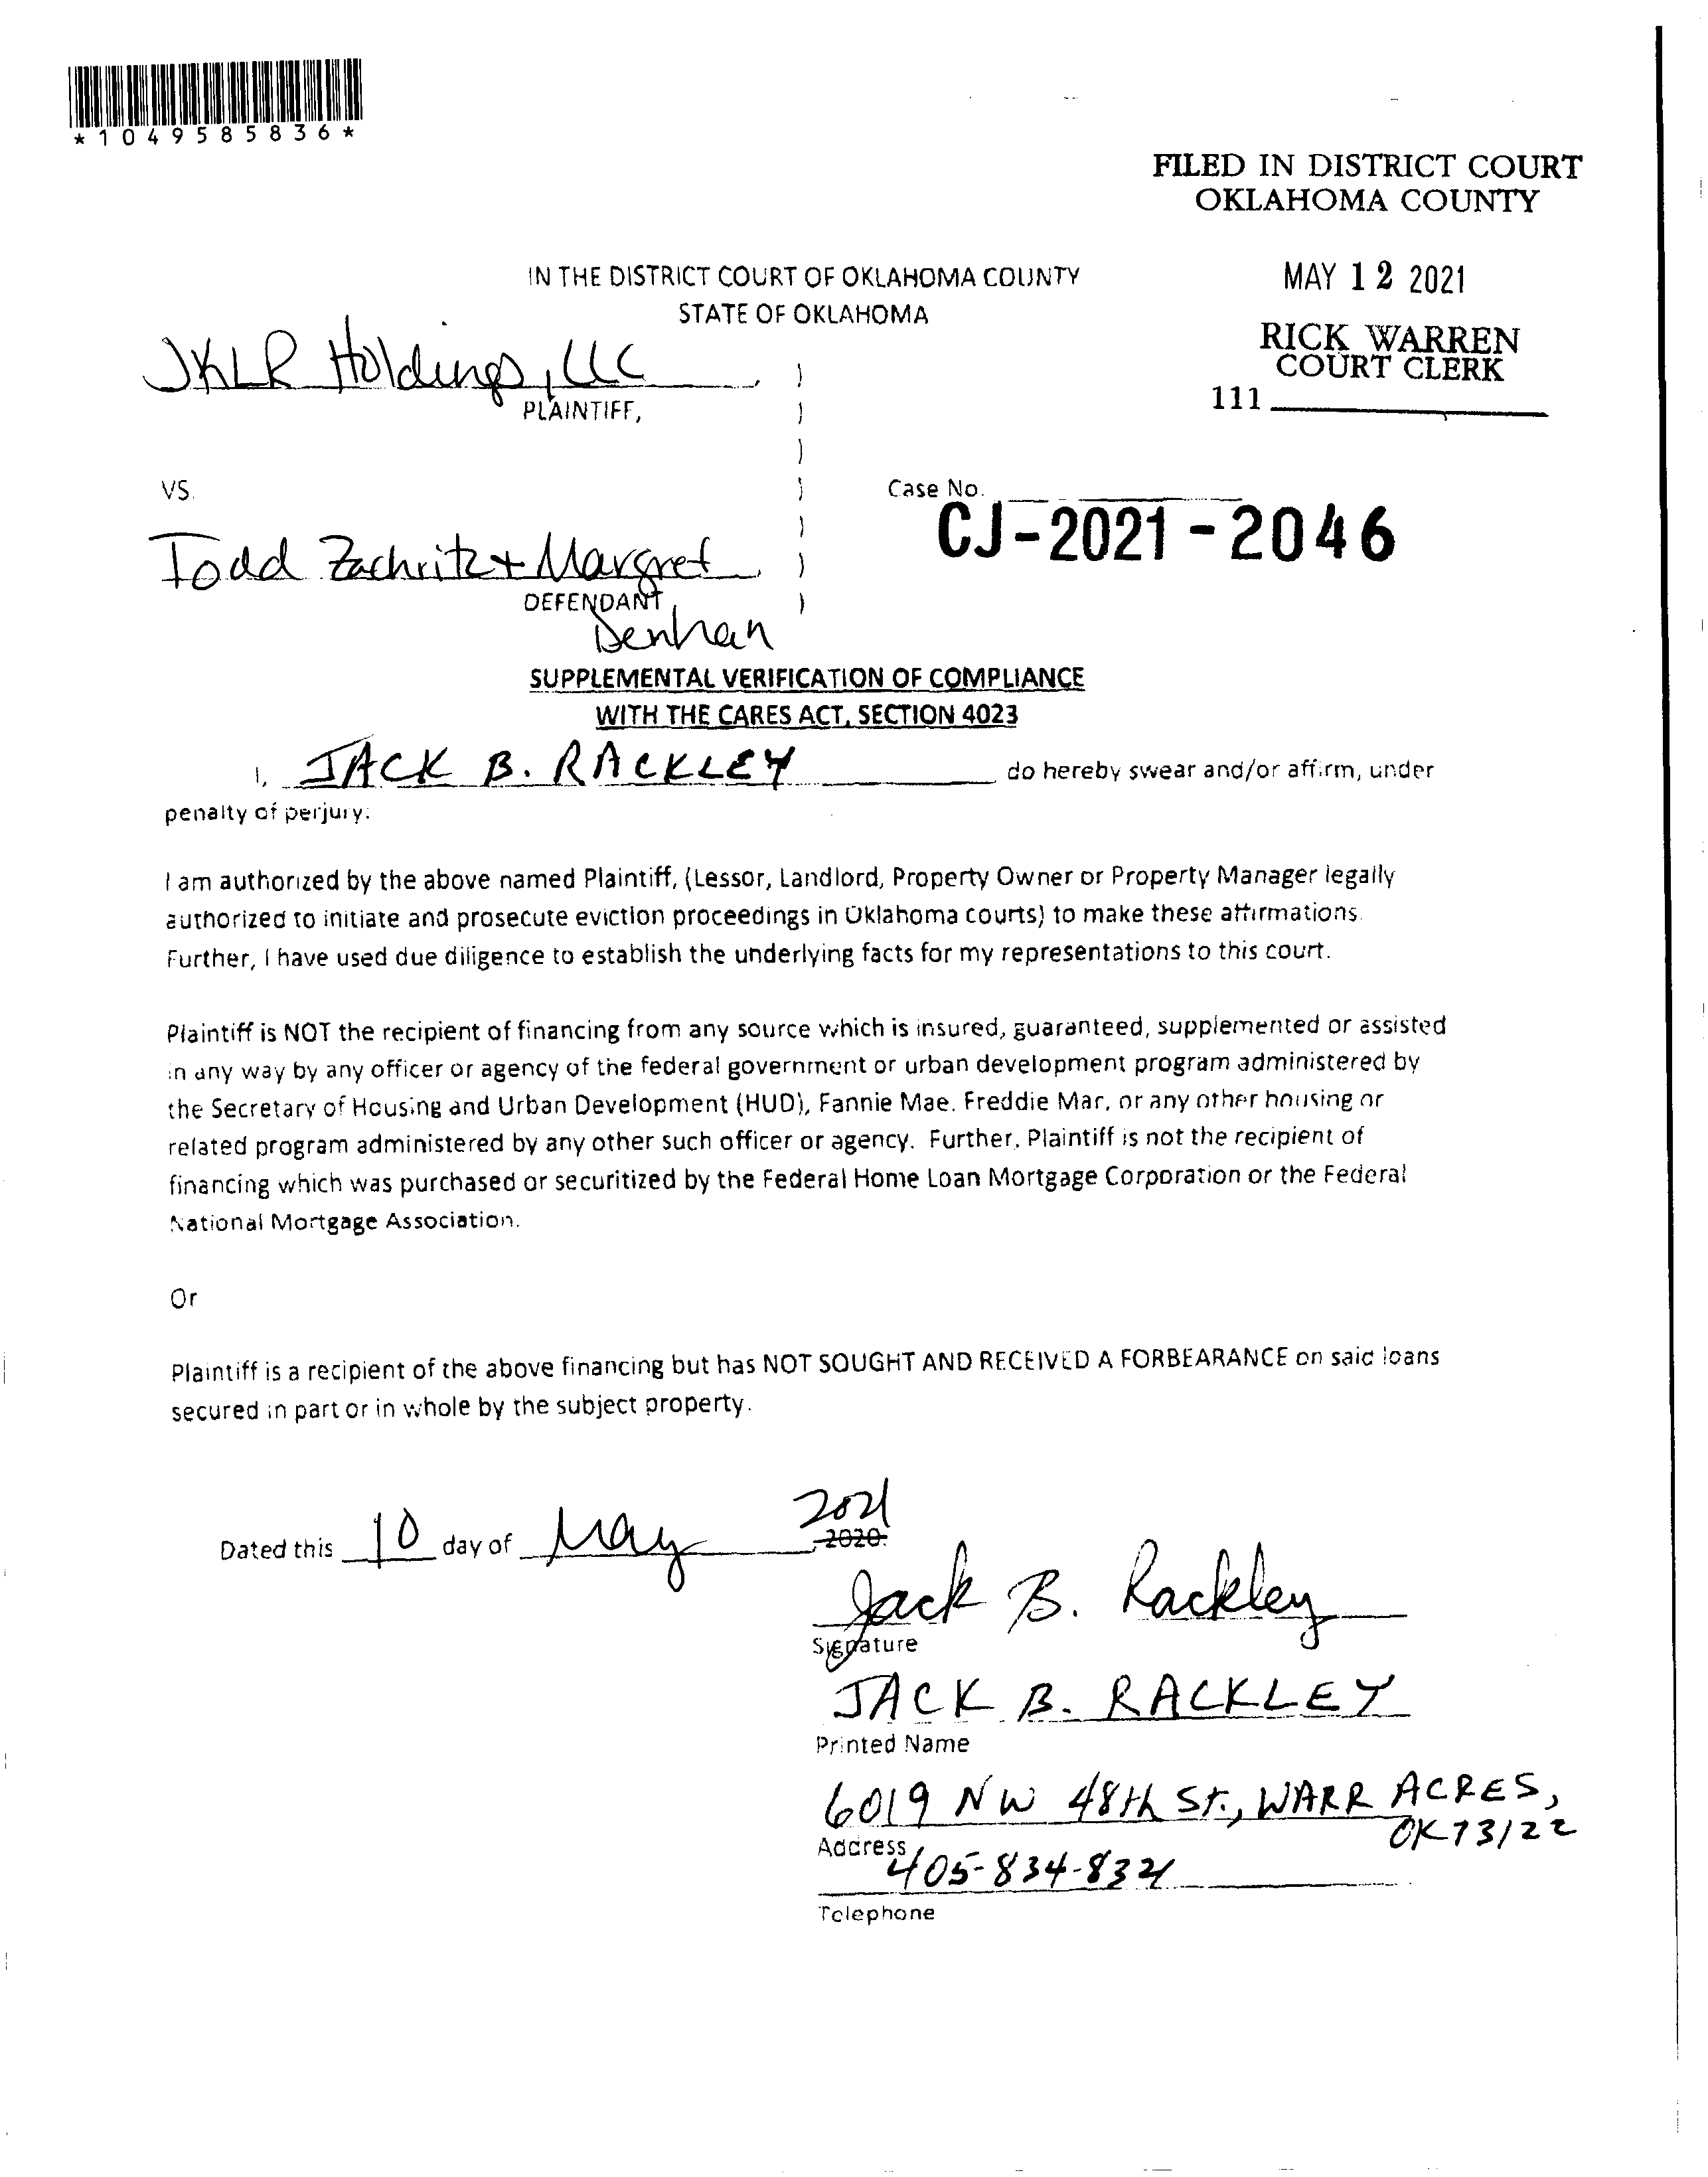 *1049585836*
FILED IN DISTRICT COURT
OKLAHOMA COUNTY
MAY 12 2021
RICK WARREN
COURT CLERK
111
IN THE DISTRICT COURT OF OKLAHOMA COUNTY
STATE OF OKLAHOMA
JKLR Holdings, LLC
PLAINTIFF,
VS.
Case No.
CJ-2021-2046
Todd Zachritz + Margret
DEFENDANT,
Denhan
SUPPLEMENTAL VERIFICATION OF COMPLIANCE
WITH THE CARES ACT, SECTION 4023
I, JACK B. RACKLEY do hereby swear and/or affirm, under
penalty of perjury:
I am authorized by the above named Plaintiff, (Lessor, Landlord, Property Owner or Property Manager legally
authorized to initiate and prosecute eviction proceedings in Oklahoma courts) to make these affirmations.
Further, I have used due diligence to establish the underlying facts for my representations to this court.
Plaintiff is NOT the recipient of financing from any source which is insured, guaranteed, supplemented or assisted
in any way by any officer or agency of the federal government or urban development program administered by
the Secretary of Housing and Urban Development (HUD), Fannie Mae, Freddie Mac, or any other housing or
related program administered by any other such officer or agency. Further, Plaintiff is not the recipient of
financing which was purchased or securitized by the Federal Home Loan Mortgage Corporation or the Federal
National Mortgage Association.
Or
Plaintiff is a recipient of the above financing but has NOT SOUGHT AND RECEIVED A FORBEARANCE on said loans
secured in part or in whole by the subject property.
2021
Dated this 10 day of May, 2020.
Jack B. Rackley
Signature
JACK B. RACKLEY
Printed Name
6019 NW 48th St., WARR ACRES,
OK 73122
Address
405-834-8321
Telephone